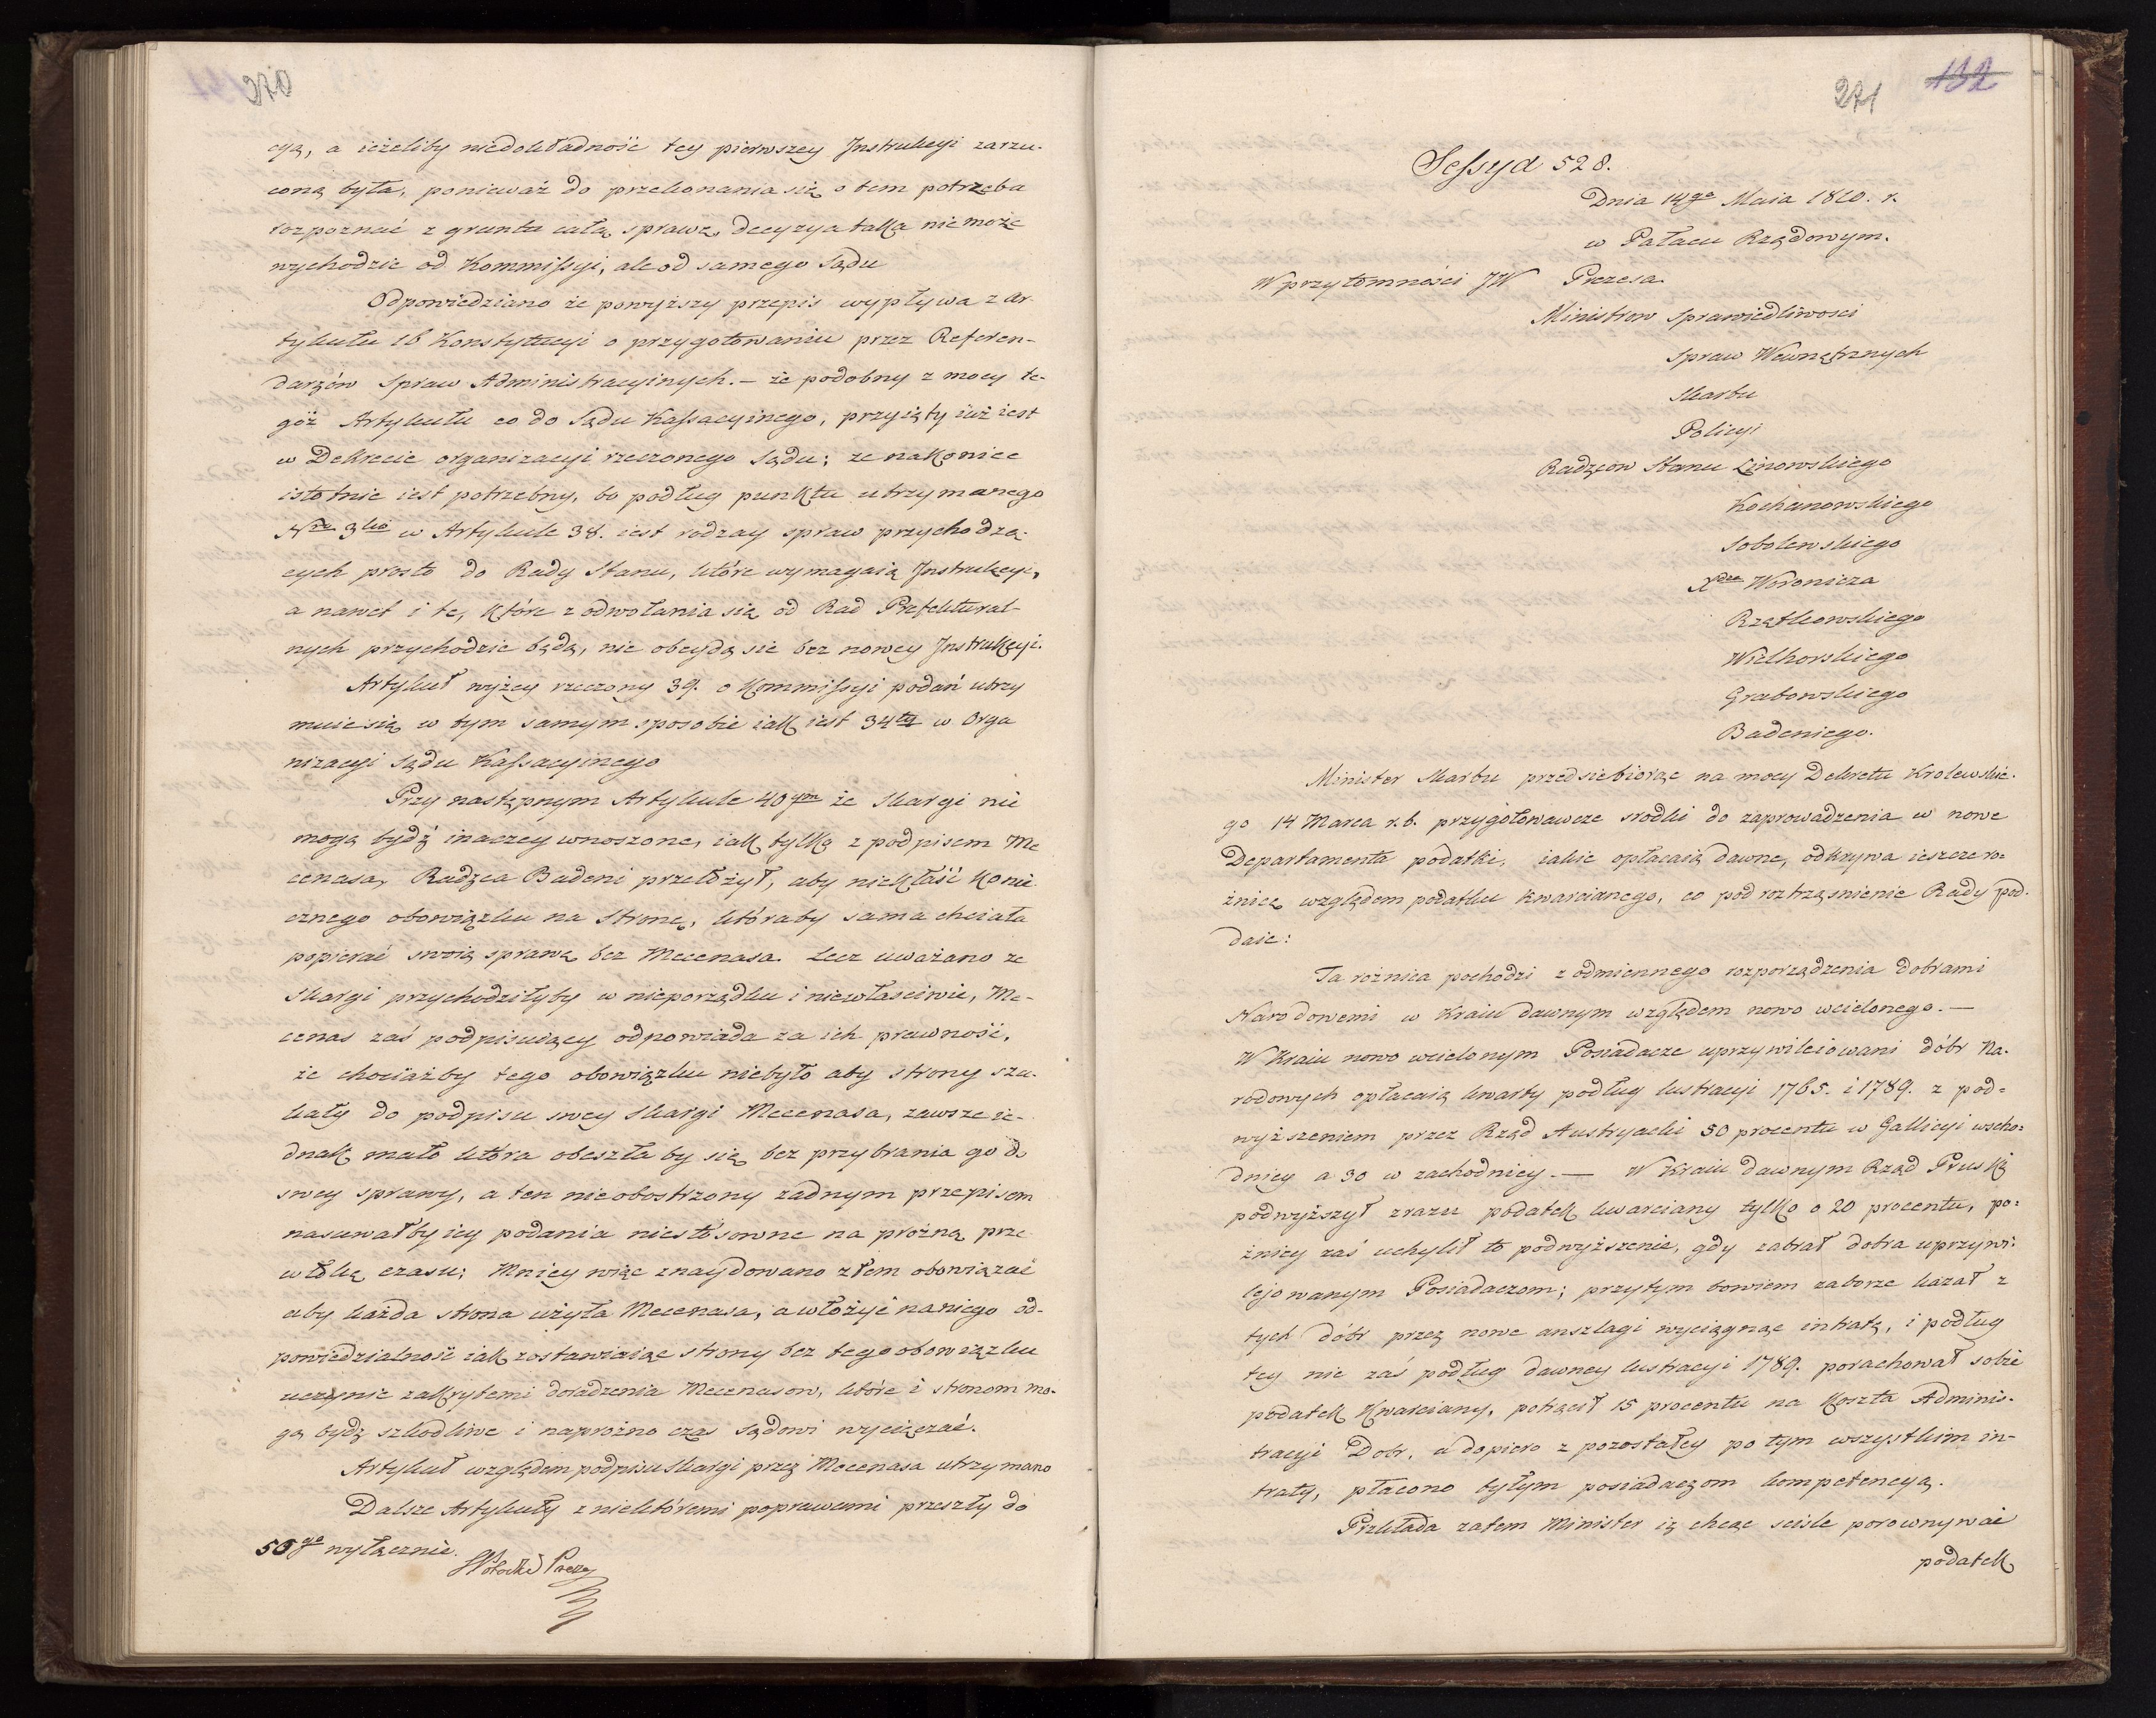 270
cyą, a ieżeliby niedokładność tey pierwszey Instrukcyi zarzu-
coną była, ponieważ do przekonania się o tem potrzeba
rozpoznać z gruntu całą sprawę, decyzya taka nie może
wychodzić od Kommissyi, ale od samego Sądu
Odpowiedziano że powyższy przepis wypływa z Ar-
tykułu 16 Konstytucyi o przygotowaniu przez Referen-
darzów Spraw Administracyinych. – że podobny z mocy te-
góż Artykułu co do Sądu Kassacyinego, przyięty iuż iest
w Dekrecie organizacyi rzeczonego Sądu; że nakoniec
istotnie iest potrzebny, bo podług punktu utrzymanego
Nro 3tio w Artykule 38. iest rodzay spraw przychodzą-
cych prosto do Rady Stanu, które wymagaią Instrukcyi,
a nawet i te, które z odwołania się od Rad Prefektural-
nych przychodzić będą, nie obeydą się bez nowey Instrukcyi.
Artykuł wyżey rzeczony 39. o Kommissyi podań utrzy
muie się w tym samym sposobie iak iest 34ty w Orga
nizacyi Sądu Kassacyinego
Przy następnym Artykule 40ym że Skargi nie
mogą bydź inaczey wnoszone, iak tylko z podpisem Me
cenasa, Radzca Badeni przełożył, aby niekłaść konie
cznego obowiązku na Stronę, któraby sama chciała
popierać swoią sprawę bez Mecenasa. Lecz uważano ze
Skargi przychodziłyby w nieporządku i niewłaściwie, Me-
cenas zaś podpisuiący odpowiada za ich prawność,
że chociażby tego obowiązku niebyło aby strony szu-
kały do podpisu swey Skargi Mecenasa, zawsze ie-
dnak mało która obeszłaby się bez przybrania go do
swey sprawy, a ten nieobostrzony żadnym przepisem
nasuwałby iey podania niestosowne na prożną prze
włokę czasu; Mniey więc znaydowano złem obowiązać
aby każda strona użyła Mecenasa, a włożyć naniego od-
powiedzialność iak zostawiaiąc strony bez tego obowiązku
uczynić zakrytemi doradzenia Mecenasow, które i stronom mo-
gą bydź szkodliwe i naprożno czas Sądowi wycięczać.
Artykuł względem podpisu Skargi przez Mecenasa utrzymano
Dalsze Artykuły z niektóremi poprawami przeszły do
50go wyłącznie.
SPotocki Prezes
271 132
Sessya 528.
Dnia 14go Maia 1810. r.
w Pałacu Rządowym.
W przytomności JW Prezesa
Ministrow Sprawiedliwości
Spraw Wewnętrznych
Skarbu
Policyi
Radzcow Stanu Linowskiego
Kochanowskiego
Sobolewskiego
Xdza Woronicza
Rzątkowskiego
Wielhorskiego
Grabowskiego
Badeniego.
Minister Skarbu przedsiębiorąc na mocy Dekretu Krolewskie-
go 14 Marca r.b. przygotowawcze srodki do zaprowadzenia w nowe
Departamenta podatki, iakie opłacaią dawne, odkrywa ieszcze ro-
żnicę względem podatku kwarcianego, co pod roztrząsnienie Rady pod-
daie:
Ta rożnica pochodzi z odmiennego rozporządzenia dobrami
Narodowemi w Kraiu dawnym względem nowo wcielonego. –
W Kraiu nowo wcielonym Posiadacze uprzywileiowani dóbr Na-
rodowych opłacaią kwarty podług lustracyi 1765. i 1789. z pod-
wyższeniem przez Rząd Austryacki 50 procentu w Gallicyi wscho-
dniey a 30 w zachodniey. – W Kraiu dawnym Rząd Pruski
podwyższył zrazu podatek kwarciany tylko o 20 procentu, po-
źniey zaś uchylił to podwyższenie, gdy zabrał dobra uprzywi-
lejowanym Posiadaczom; przytym bowiem zaborze kazał z
tych dóbr przez nowe anszlagi wyciągnąć intratę, i podług
tey nie zaś podług dawney lustracyi 1789. porachował sobie
podatek Kwarciany, potrącił 15 procentu na koszta Adminis-
tracyi Dobr, a dopiero z pozostałey po tym wszystkim in-
traty, płacono byłym posiadaczom kompetencyą.
Przekłada zatem Minister iż chcąc ściśle porownywać
podatek